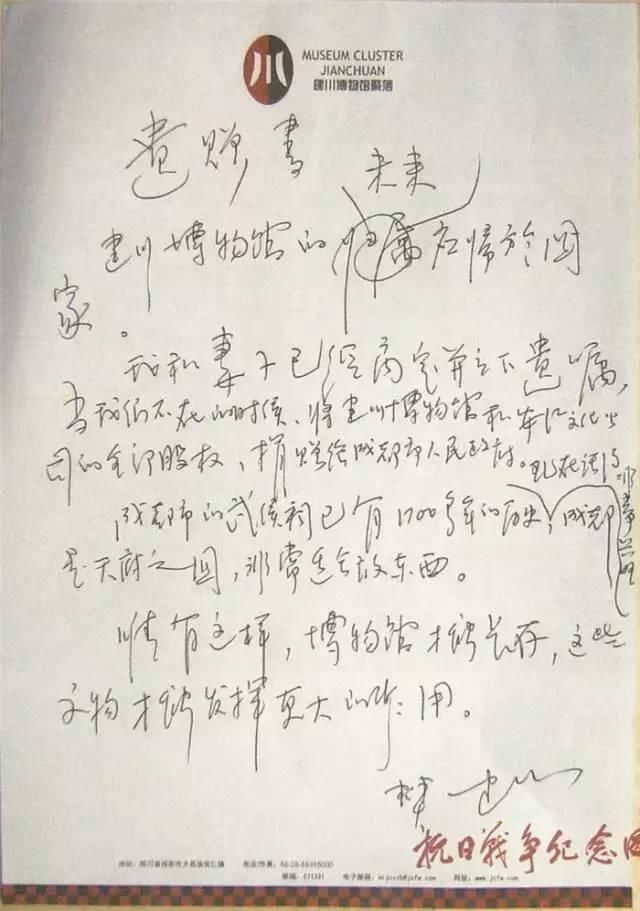 MUSEUM CLUSTER
JIANCHUAN
建川博物馆聚落
遗赠书
未来
建川博物馆的归属应归于国
家。
我和妻子已经商定并立下遗嘱,
当我们不在的时候、将建川博物馆和安仁文化公
司的全部股权,捐赠给成都市人民政府。
现在依然非常兴旺
成都市的武侯祠已有1700多年的历史,成都
是天府之国,非常适合放东西。
惟有这样,博物馆才能长存,这些
文物才能发挥更大的作用。
樊建川
抗日战争纪念
地址:四川省成都市大邑县安仁镇 电话/传真:86-28-88318000
邮编:611331 电子邮箱: 网址:www.jc